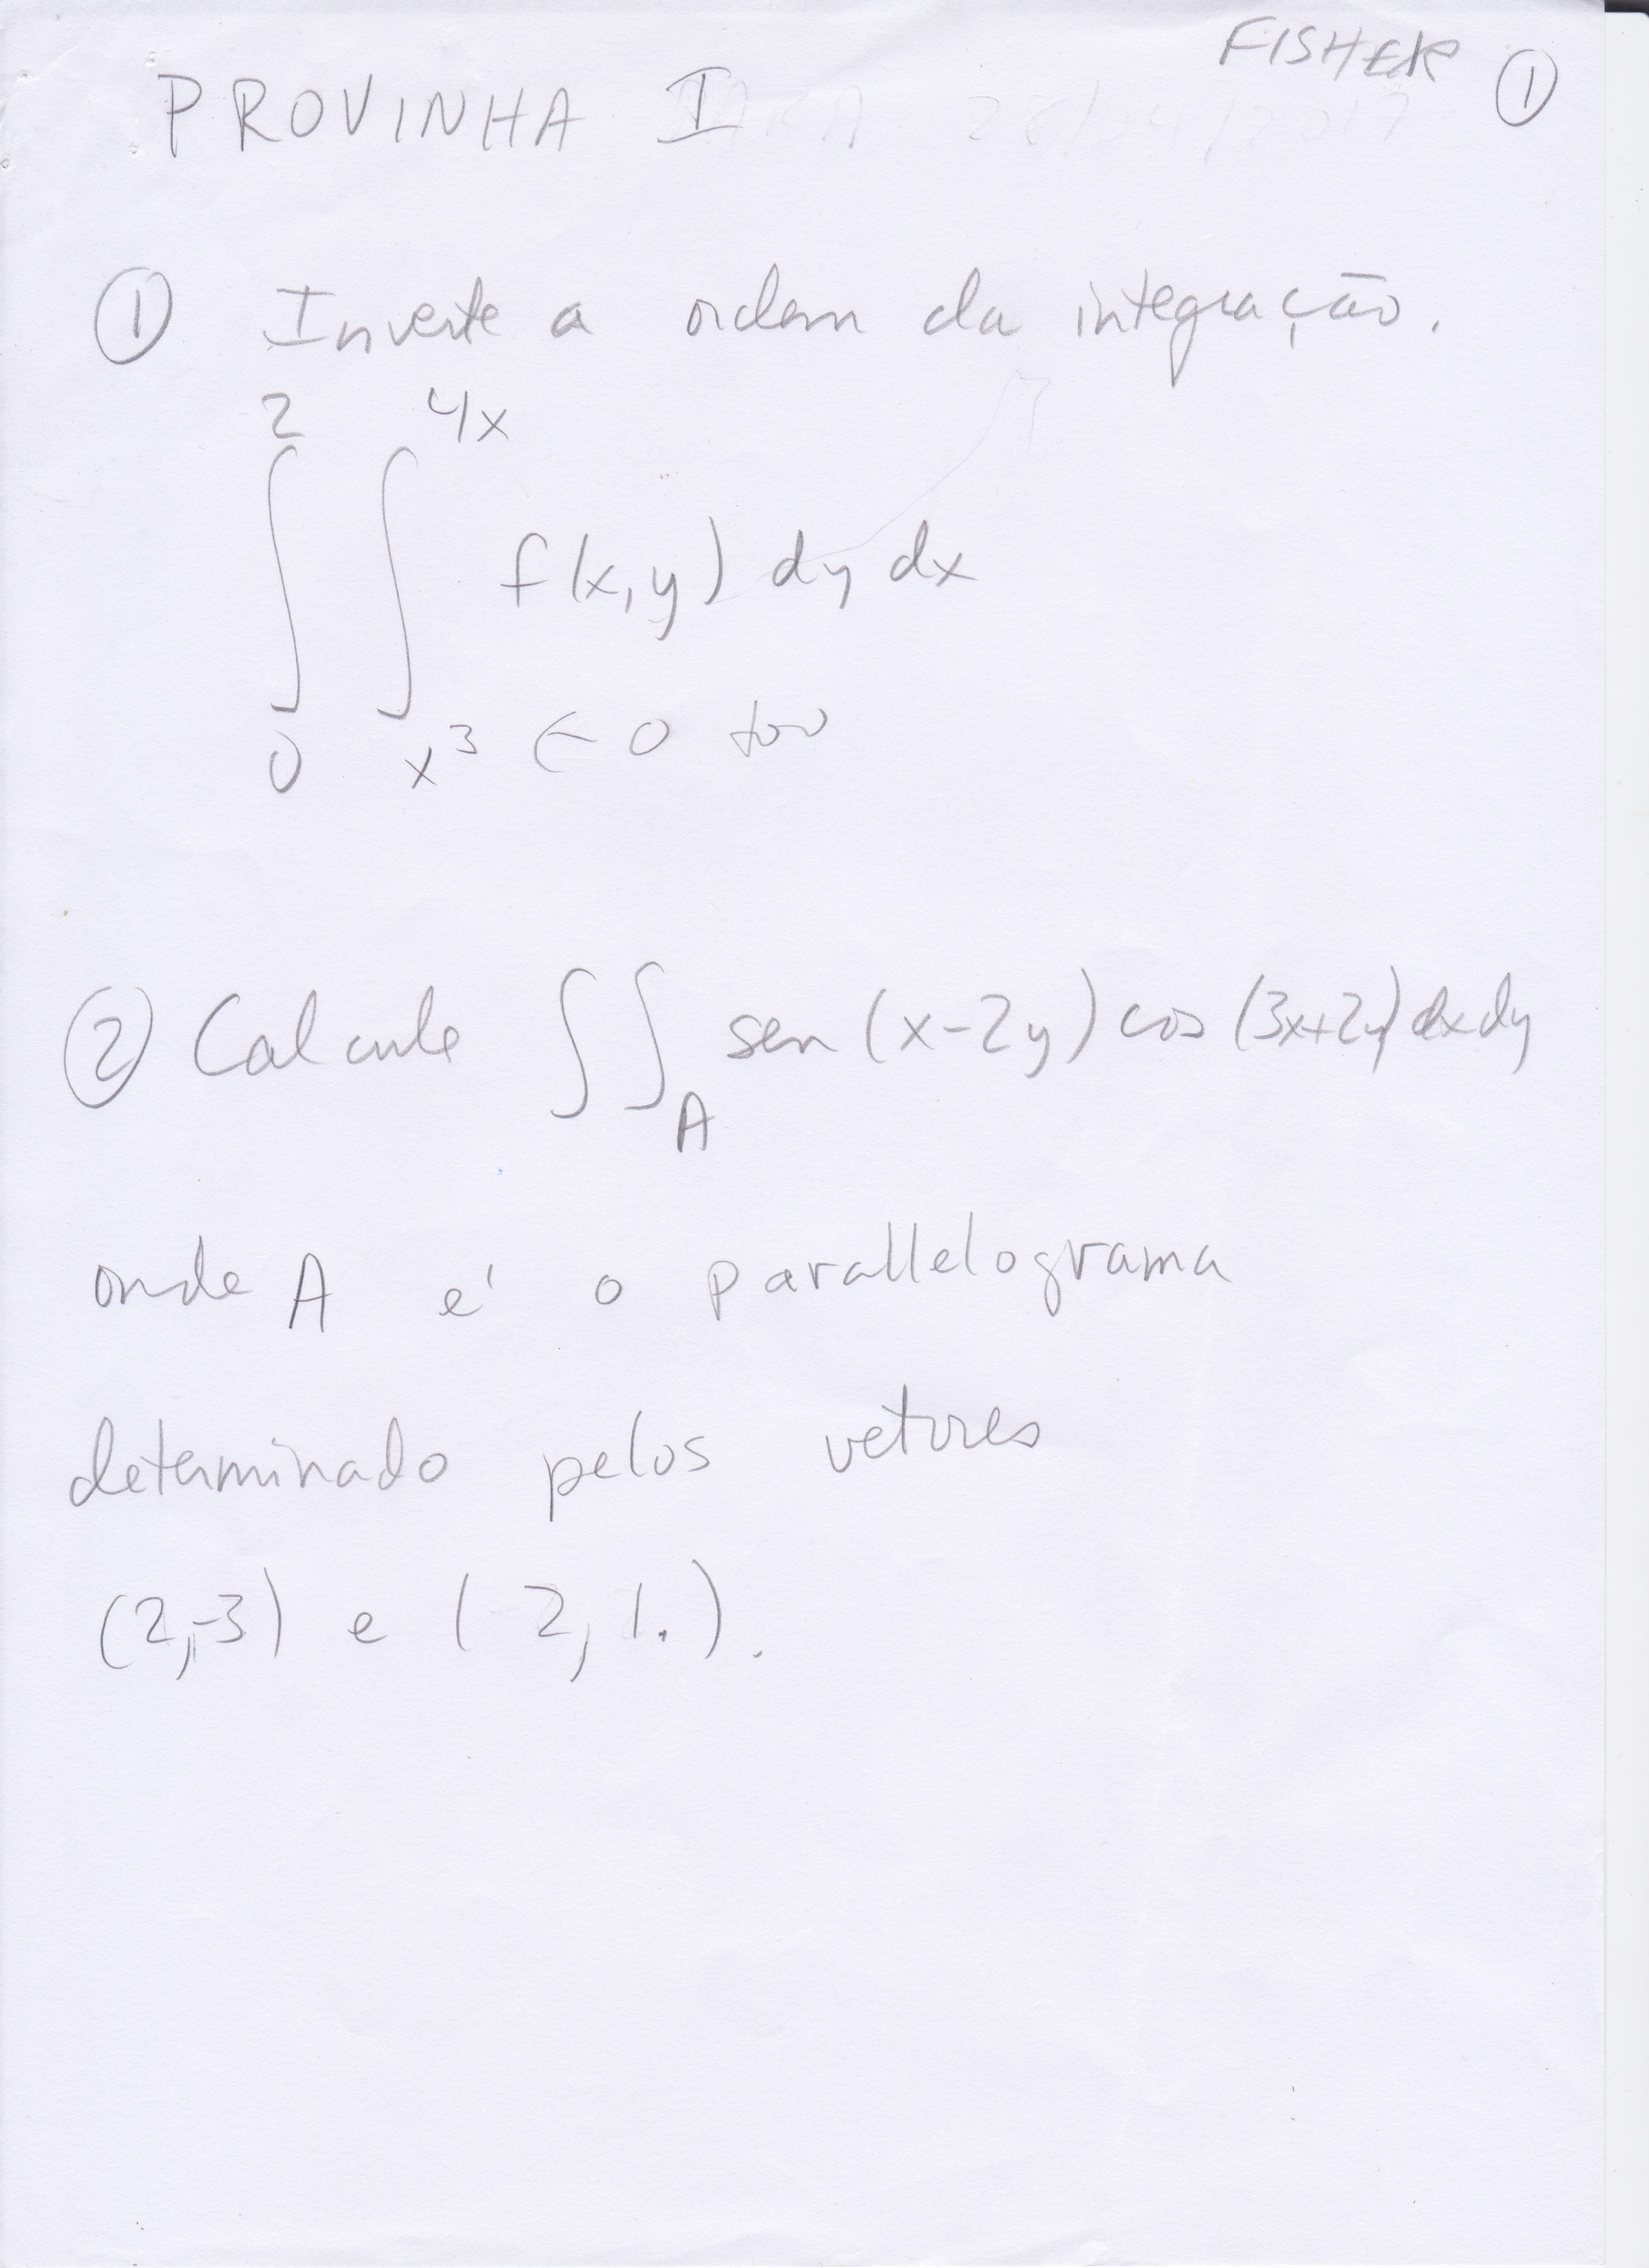 FISHER ①
PROVINHA I
① Inverte a ordem da integração.
∫_0^2 ∫_{x^3}^{4x} f(x,y) dy dx
← 0
② Calcule ∫∫_A sen(x-2y) cos(3x+2y) dx dy
onde A é o parallelograma
determinado pelos vetores
(2,-3) e (2,1).